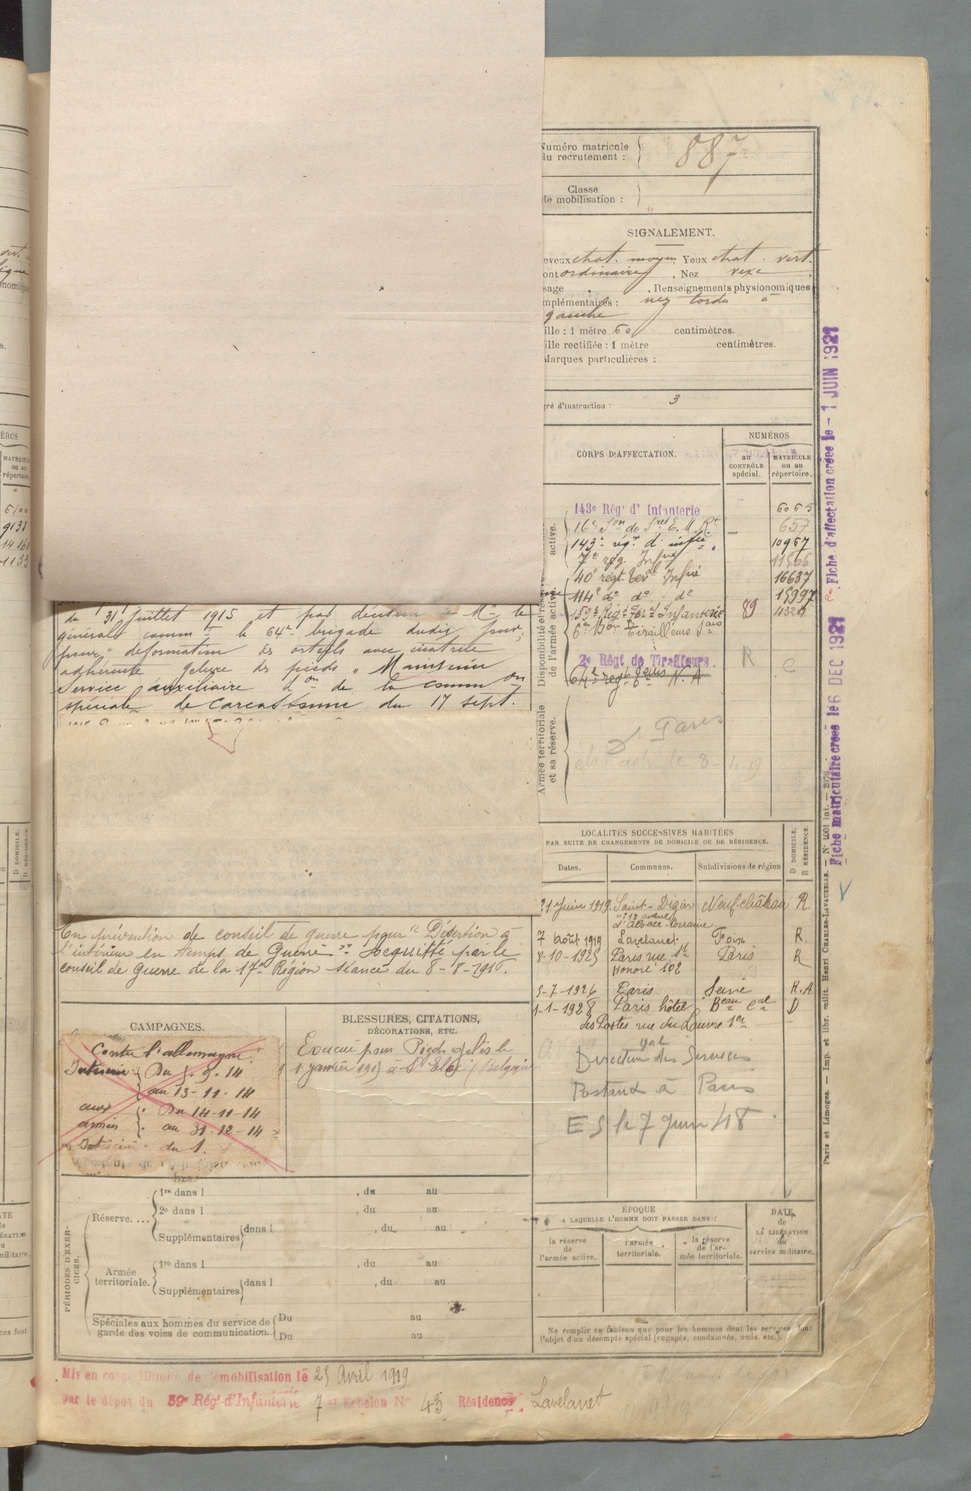 Numéro matricule
du recrutement :
887
Classe
de mobilisation :
SIGNALEMENT.
eveux chat. moyen Yeux chat. vert.
ont ordinaire, Nez vexe
sage , Renseignements physionomiques
mplémentaires : nez tordu à
gauche
ille : 1 mètre 60 centimètres.
ille rectifiée : 1 mètre centimètres.
Marques particulières :
gré d'instruction : 3
CORPS D'AFFECTATION.
NUMÉROS
AU CONTRÔLE spécial.
MATRICULE ou au répertoire.
Disponibilité et réserve de l'armée active.
143e Régt d' Infanterie 6065
16e Son de E. M. Rt 657
143e régt d' infie 10967
7e rég. Infie
40e régt Infie 16637
114e do do de 15997
159e Régt d'Infanterie 89 4320
6e Bon Tirailleurs
2e Régt de Tirailleurs. R C
Armée territoriale
et sa réserve.
Paris
31 Juillet 1915 et par décision de Mr le
général commt la 64e brigade dudit jour
pour " déformation des orteils avec cicatrice
adhérente gelure des pieds " Maintenu
Service auxiliaire don de la common
spéciale de Carcassonne du 17 sept.
En prévention de conseil de guerre pour " Désertion à
l'intérieur en temps de Guerre " Acquitté par le
conseil de Guerre de la 17e Région séance du 8-8-1916.
LOCALITÉS SUCCESSIVES HABITÉES
PAR SUITE DE CHANGEMENTS DE DOMICILE OU DE RÉSIDENCE.
Dates. Communes. Subdivisions de région D DOMICILE. R RÉSIDENCE.
21 Juin 1919. Saint-Dizier Neufchâteau R
d'Alsace Lorraine
7 Août 1919 Lavelanet Foix R.
8-10-1925 Paris rue St Paris R
Honoré 102
5-7-1926 Paris Seine R.A
1-1-1928 Paris hôtel Beau Cal D
des Postes rue du Louvre 1er
Direction des Services
Postaux à Paris
ES le 7 Juin 48
CAMPAGNES.
Contre l'allemagne :
Intérieur Du 5-9-14
au 13-11-14
aux Du 14-11-14
armées au 31-12-14
Intérieur du 1.
BLESSURES, CITATIONS,
DÉCORATIONS, ETC.
Evacué pour Pieds gelés le
1 janvier 1915 à St Eloi (Belgique
PÉRIODES D'EXERCICES.
Réserve....
1re dans l , du au
2e dans l , du au
Supplémentaires dans l , du au
Armée
territoriale.
1re dans l , du au
Supplémentaires dans l , du au
Spéciales aux hommes du service de
garde des voies de communication.
Du au
Du au
ÉPOQUE
A LAQUELLE L'HOMME DOIT PASSER DANS :
la réserve de l'armée active.
l'armée territoriale.
la réserve de l'armée territoriale.
DATE
de
LA LIBÉRATION
du
service militaire.
Ne remplir ce tableau que pour les hommes dont les services font
l'objet d'un décompte spécial (engagés, condamnés, omis, etc.).
Mis en congé illimité de démobilisation le 25 Avril 1919
par le dépôt du 59e Régt d'Infanterie 7 e Echelon No 43 Résidence Lavelanet
Fiche d'affectation créée le - 1 JUIN 1921
Fiche matriculaire créée le 6 DEC 1921
Paris et Limoges. — Imp. et libr. milit. Henri CHARLES-LAVAUZELLE.